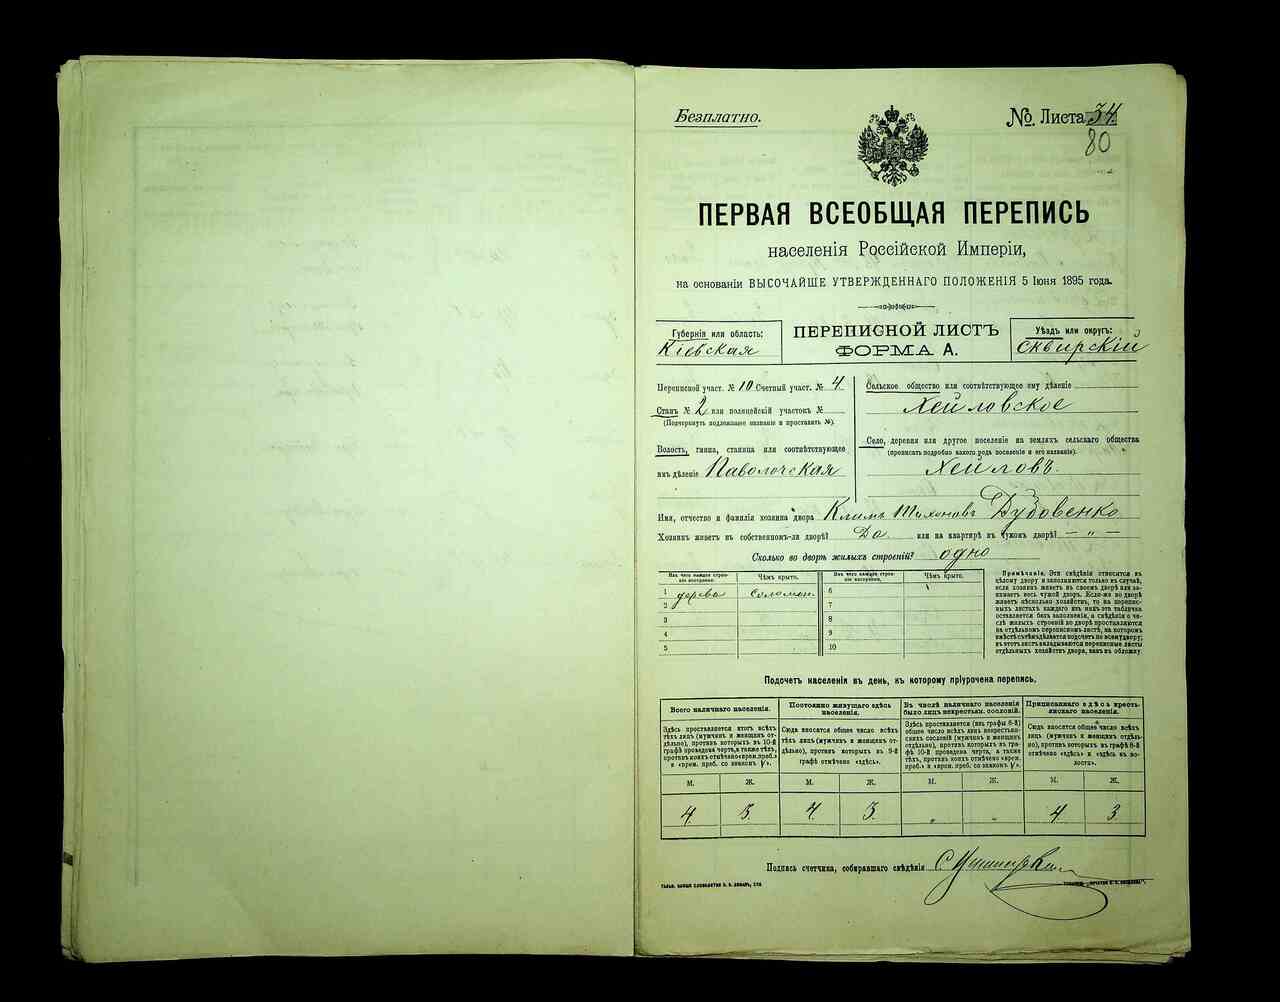 Безплатно.
№ Листа 34.
80
ПЕРВАЯ ВСЕОБЩАЯ ПЕРЕПИСЬ
населенія Россійской Имперіи,
на основаніи ВЫСОЧАЙШЕ УТВЕРЖДЕННАГО ПОЛОЖЕНІЯ 5 Іюня 1895 года.
Губернія или область:
Кіевская
ПЕРЕПИСНОЙ ЛИСТЪ
ФОРМА А.
Уѣздъ или округъ:
Сквирскій
Переписной участ. № 10 Счетный участ. № 4
Станъ № 2 или полицейскій участокъ №
(Подчеркнуть подлежащее названіе и проставить №).
Волость, гмина, станица или соотвѣтствующее
имъ дѣленіе Паволочская
Сельское общество или соотвѣтствующее ему дѣленіе
Хейловское
Село, деревня или другое поселеніе на земляхъ сельскаго общества
(прописать подробно какого рода поселеніе и его названіе).
Хейловъ.
Имя, отчество и фамилія хозяина двора Климъ Тихоновъ Дубовенко
Хозяинъ живетъ въ собственномъ-ли дворѣ? Да или на квартирѣ въ чужомъ дворѣ? — „ —
Сколько во дворѣ жилыхъ строеній? одно
Изъ чего каждое строеніе построено.
Чѣмъ крыто.
Изъ чего каждое строеніе построено.
Чѣмъ крыто.
1 дерева Соломой.
2
3
4
5
6
7
8
9
10
Примѣчаніе. Эти свѣдѣнія относятся къ
цѣлому двору и заполняются только въ случаѣ,
если хозяинъ живетъ въ своемъ дворѣ или занимаетъ
весь чужой дворъ. Если-же во дворѣ
живетъ нѣсколько хозяйствъ, то на переписныхъ
листахъ каждаго изъ нихъ эта табличка
оставляется безъ заполненія, а свѣдѣнія о числѣ
жилыхъ строеній во дворѣ проставляются
на отдѣльномъ переписномъ листѣ, на которомъ
вмѣстѣ съ тѣмъ дѣлается подсчетъ по всему двору;
въ этотъ листъ вкладываются переписные листы
отдѣльныхъ хозяйствъ двора, какъ въ обложку.
Подсчетъ населенія въ день, къ которому пріурочена перепись.
Всего наличнаго населенія.
Здѣсь проставляется итогъ всѣхъ
лицъ (мужчинъ и женщинъ отдѣльно),
противъ которыхъ въ 10-й
графѣ проведена черта, а также тѣхъ,
противъ коихъ отмѣчено «врем. преб.»
и «врем. преб. со знакомъ V».
Постоянно живущаго здѣсь населенія.
Сюда вносится общее число всѣхъ
тѣхъ лицъ (мужчинъ и женщинъ отдѣльно),
противъ которыхъ въ 9-й
графѣ отмѣчено «здѣсь».
Въ числѣ наличнаго населенія
было лицъ некрестьян. сословій.
Здѣсь проставляется (изъ графы 6-й)
общее число всѣхъ лицъ некрестьянскихъ
сословій (мужчинъ и женщинъ
отдѣльно), противъ которыхъ въ графѣ
10-й проведена черта, а также
тѣхъ, противъ коихъ отмѣчено «врем.
преб.» и «врем. преб. со знакомъ V».
Приписаннаго здѣсь крестьянскаго населенія.
Сюда вносятся общее число всѣхъ
лицъ (мужчинъ и женщинъ отдѣльно),
противъ которыхъ въ графѣ 8-й
отмѣчено «здѣсь» и «здѣсь въ волости».
М. Ж. М. Ж. М. Ж. М. Ж.
4. 3. 4. 3. „ „ 4 3.
Подпись счетчика, собиравшаго свѣдѣнія